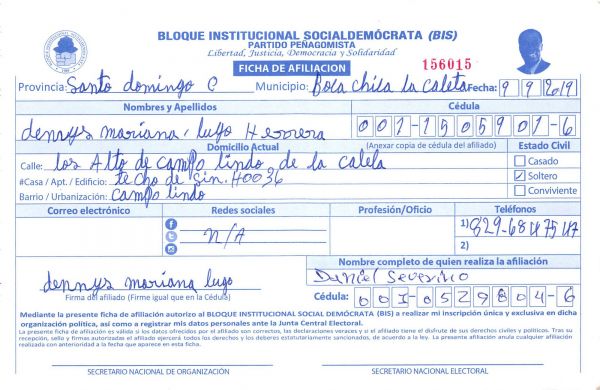 BLOQUE INSTITUCIONAL SOCIALDEMÓCRATA (BIS)
PARTIDO PEÑAGOMISTA
Libertad, Justicia, Democracia y Solidaridad
156015
FICHA DE AFILIACION
Provincia: Santo domingo Municipio: Boca chica la caleta Fecha: 9 9 2019
Nombres y Apellidos Cédula
dennys mariana lugo Herrera 001-1505901-6
Domicilio Actual (Anexar copia de cédula del afiliado) Estado Civil
Calle: los Alto de campo lindo de la caleta Casado
#Casa / Apt. / Edificio: techo de sin. #0036 Soltero
Barrio / Urbanización: campo lindo Conviviente
Correo electrónico Redes sociales Profesión/Oficio Teléfonos
N/A 1) 829-68
2)
Nombre completo de quien realiza la afiliación
dennys mariana lugo Daniel Severino
Firma del afiliado (Firme igual que en la Cédula) Cédula: 001-0529804-6
Mediante la presente ficha de afiliación autorizo al BLOQUE INSTITUCIONAL SOCIAL DEMÓCRATA (BIS) a realizar mi inscripción única y exclusiva en dicha
organización política, así como a registrar mis datos personales ante la Junta Central Electoral.
La presente ficha de afiliación es válida si los datos ofrecidos por el afiliado son correctos, las declaraciones veraces y si el afiliado tiene el disfrute de sus derechos civiles y políticos. Tras su
recepción, sello y firmas autorizadas el afiliado ejercerá todos los derechos y los deberes estatutariamente sancionados, de acuerdo a la ley. La presente afiliación anula cualquier afiliación
realizada con anterioridad a la fecha que aparece en esta ficha.
SECRETARIO NACIONAL DE ORGANIZACIÓN SECRETARIO NACIONAL ELECTORAL